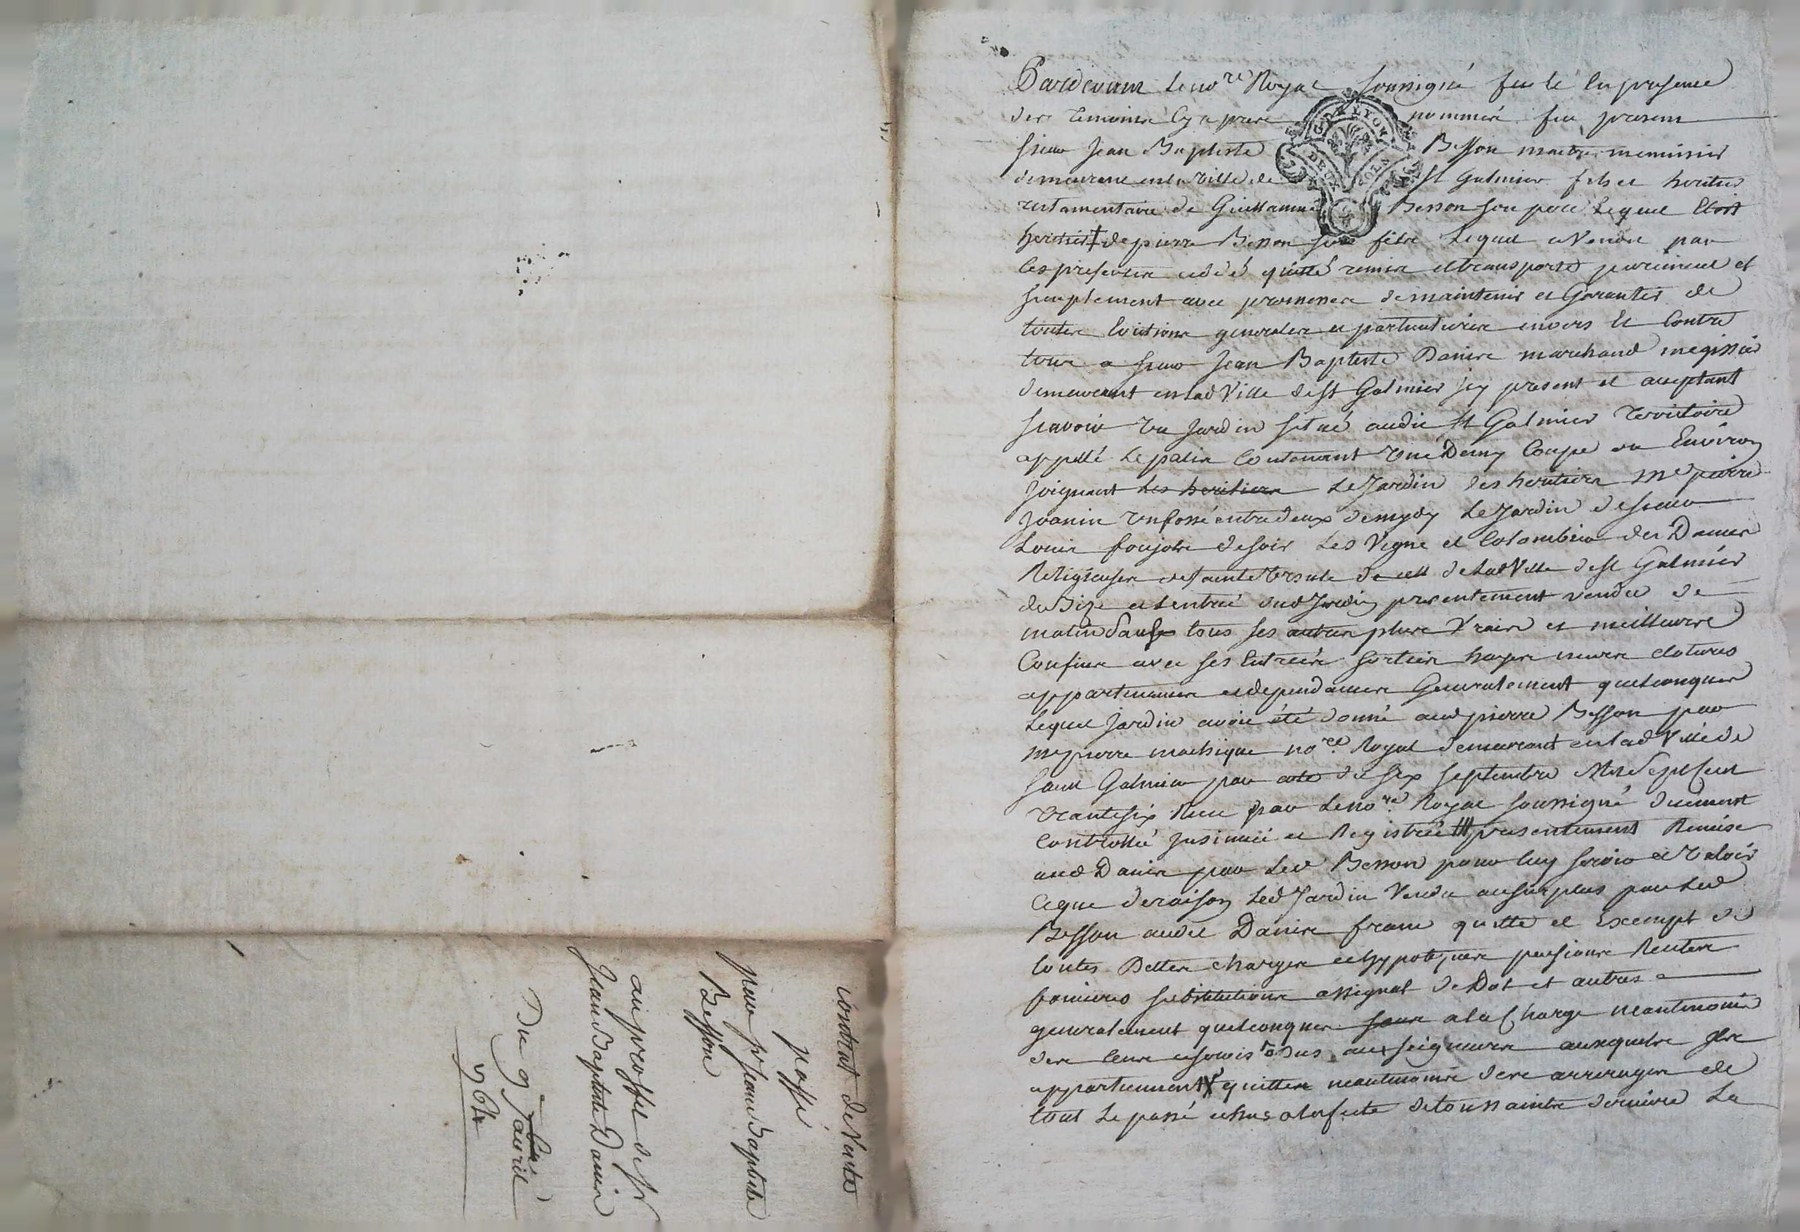 contrat de vente
passé
par sr Jean Baptiste
Besson
au proffit de sr
Jean Baptiste Danier
Du 9e avril
1764
Pardevant le no.re Royal soussigné fut et en presence
des temoins cy apres nommés fut present
sieur Jean Baptiste Besson maitre menuisier
demeurant en la ville de st Galmier fils et heritier
testamentaire de Guillaume Besson son pere lequel etoit
heritier de pierre Besson son frere lequel a vendu par
ces presentes cedé quitté remis et transporté purement et
simplement avec promesse de maintenir et Garantir de
toutes Evictions generales et particulieres envers et Contre
tous a sieur Jean Baptiste Danier marchand megissier
demeurant en lad Ville de st Galmier jcy present et acceptant
scavoir un Jardin situé audit st Galmier territoire
appellé Le palin Contenant une Demy Coupe ou Environ
Joignant les heritiers Le Jardin des heritiers me pierre
Joanin un fossé entre deux de mydy Le Jardin de sieur
Louis de soir Les Vigne et Colombier des Dames
Religieuses de sainte Ursule de lad Ville de st Galmier
de Bize et entrée dud Jardin presentement vendu de
matin sauf tous ses autres plus Vrais et meilleurs
Confins avec ses Entrées sorties hayes murs clotures
appartenances et dependances Generalement quelconques
Lequel Jardin avoit été donné aud pierre Besson par
me pierre no.re Royal demeurant en lad Ville de
saint Galmier par acte du six septembre Mil sept Cent
trante six Recu par Le no.re Royal soussigné duement
Controllé Jnsinué et Registré presentement Remise
aud Danier par Led Besson pour luy servir et valoir
ce que de raison Led Jardin Vendu au surplus par Led
Besson audit Danier franc quitte et Exempt de
toutes Dettes charges et hypoteques pensions Rentes
foncieres substitutions assignat de Dot et autres
generalement quelconques a la Charge neantmoins
des cens et servis dus aux seigneurs auxquels ils
appartiennent quittes neantmoins des arrerages de
tout Le passé a la feste de toussaints derniere La